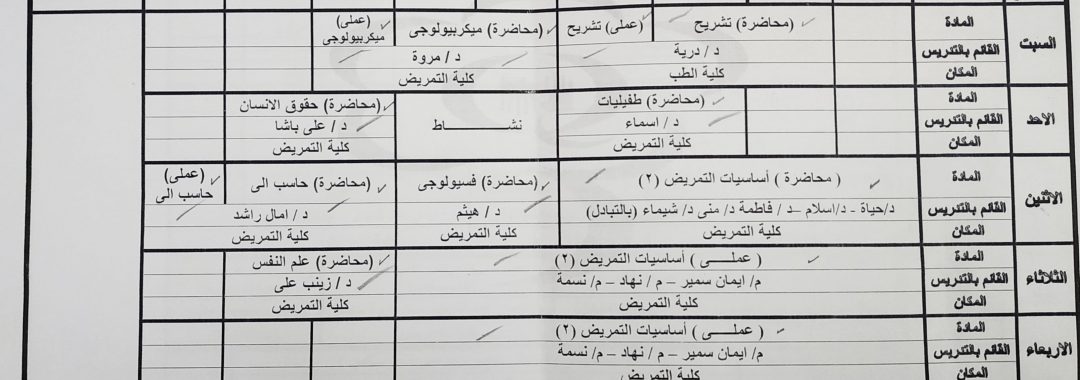 السبت
المادة
(محاضرة) تشريح
(عملى) تشريح
(محاضرة) ميكربيولوجى
(عملى)
ميكربيولوجى
القائم بالتدريس
د / درية
د / مروة
المكان
كلية الطب
كلية التمريض
الاحد
المادة
(محاضرة) طفيليات
نشـــــــــاط
(محاضرة) حقوق الانسان
القائم بالتدريس
د / اسماء
د / على باشا
المكان
كلية التمريض
كلية التمريض
الاثنين
المادة
( محاضرة ) أساسيات التمريض (٢)
(محاضرة) فسيولوجى
(محاضرة) حاسب الى
(عملى)
حاسب الى
القائم بالتدريس
د/حياة - د/اسلام –د / فاطمة د/ منى د/ شيماء (بالتبادل)
د / هيثم
د / امال راشد
المكان
كلية التمريض
كلية التمريض
كلية التمريض
الثلاثاء
المادة
( عملـــى ) أساسيات التمريض (٢)
(محاضرة) علم النفس
القائم بالتدريس
م/ ايمان سمير – م / نهاد – م/ نسمة
د / زينب على
المكان
كلية التمريض
كلية التمريض
الاربعاء
المادة
( عملـــى ) أساسيات التمريض (٢)
القائم بالتدريس
م/ ايمان سمير – م / نهاد – م/ نسمة
المكان
كلية التمريض